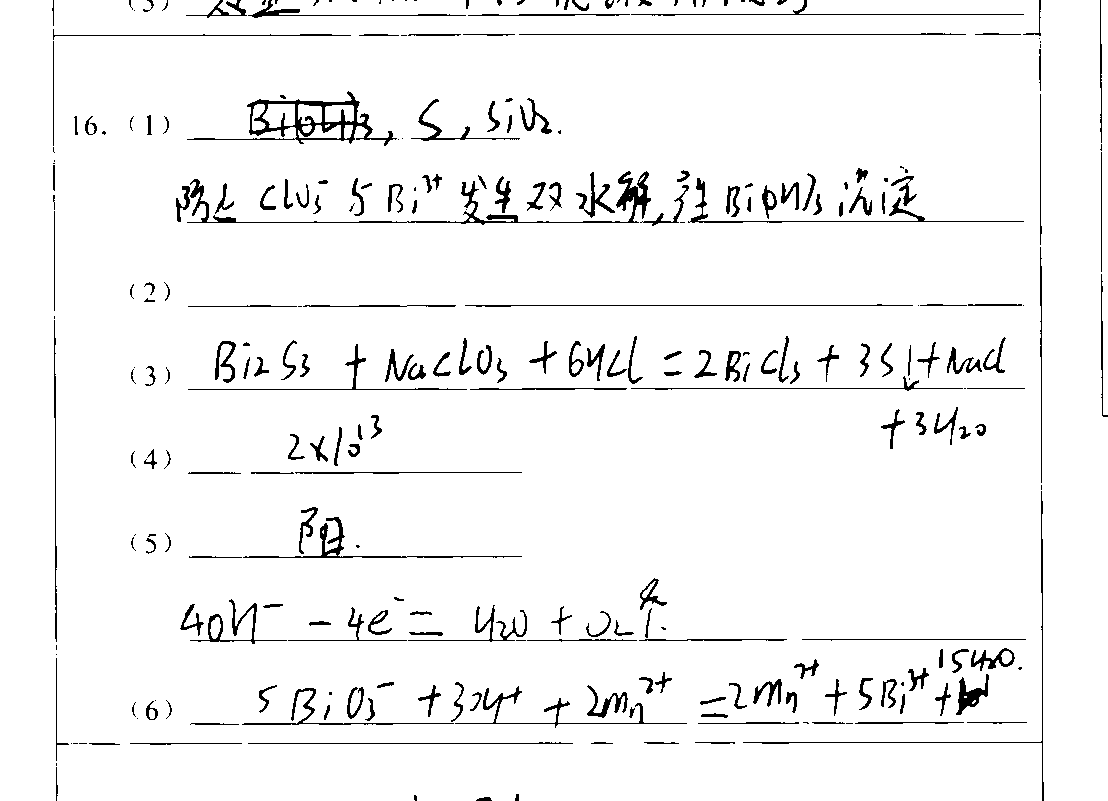 (3)
16. (1) S, SiO₂.
防止 ClO₃⁻ 与 Bi³⁺ 发生双水解,产生 Bi(OH)₃ 沉淀
(2)
(3) Bi₂S₃ + NaClO₃ + 6HCl = 2BiCl₃ + 3S↓ + NaCl
+3H₂O
(4) 2×10¹³
(5) 阳.
4OH⁻ - 4e⁻ = H₂O + O₂↑.
15H₂O.
(6) 5BiO₃⁻ + 30H⁺ + 2Mn²⁺ = 2Mn⁷⁺ + 5Bi³⁺ +